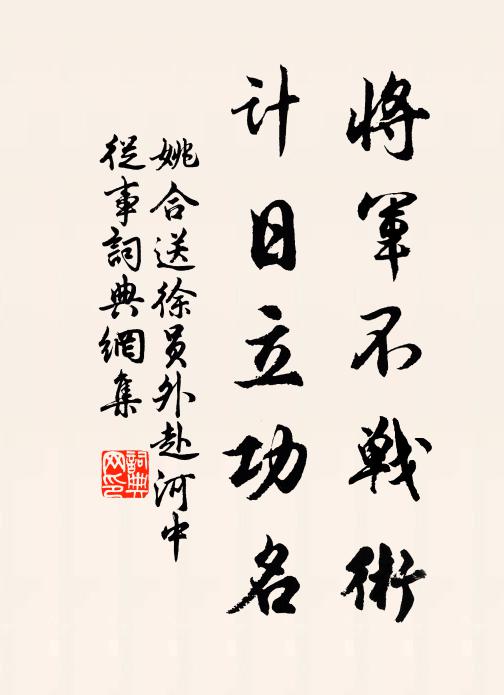 將軍不戰術
計日立功名
姚合送徐員外赴河中
從事詞典網集
詞典
网印